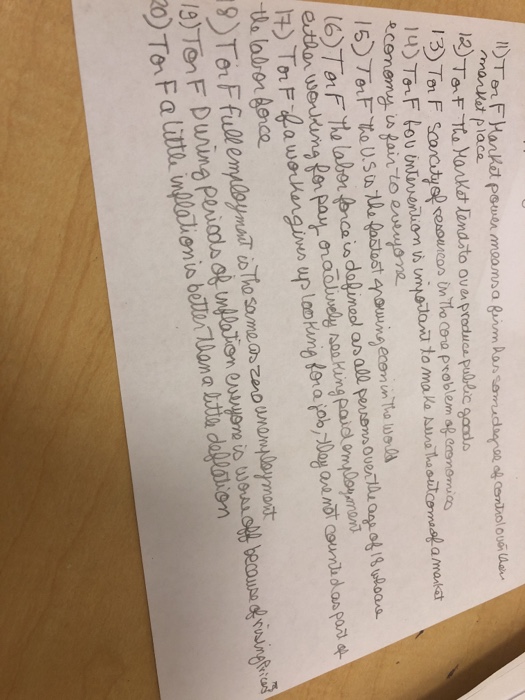 11) T or F Market power means a firm has some degree of control over their
market place
12) T or F The Market tends to over produce public goods
13) T or F Scarcity of resources in the core problem of economics
14) T or F Gov intervention is important to make sure the outcome of a market
economy is fair to everyone
15) T or F The U.S is the fastest growing econ in the world
16) T or F The labor force is defined as all persons over the age of 18 who are
either working for pay or actively seeking paid employment
17) T or F if a worker gives up looking for a job, they are not counted as part of
the labor force
18) T or F full employment is the same as zero unemployment
19) T or F During periods of inflation everyone is worse off because of rising prices
20) T or F a little inflation is better then a little deflation